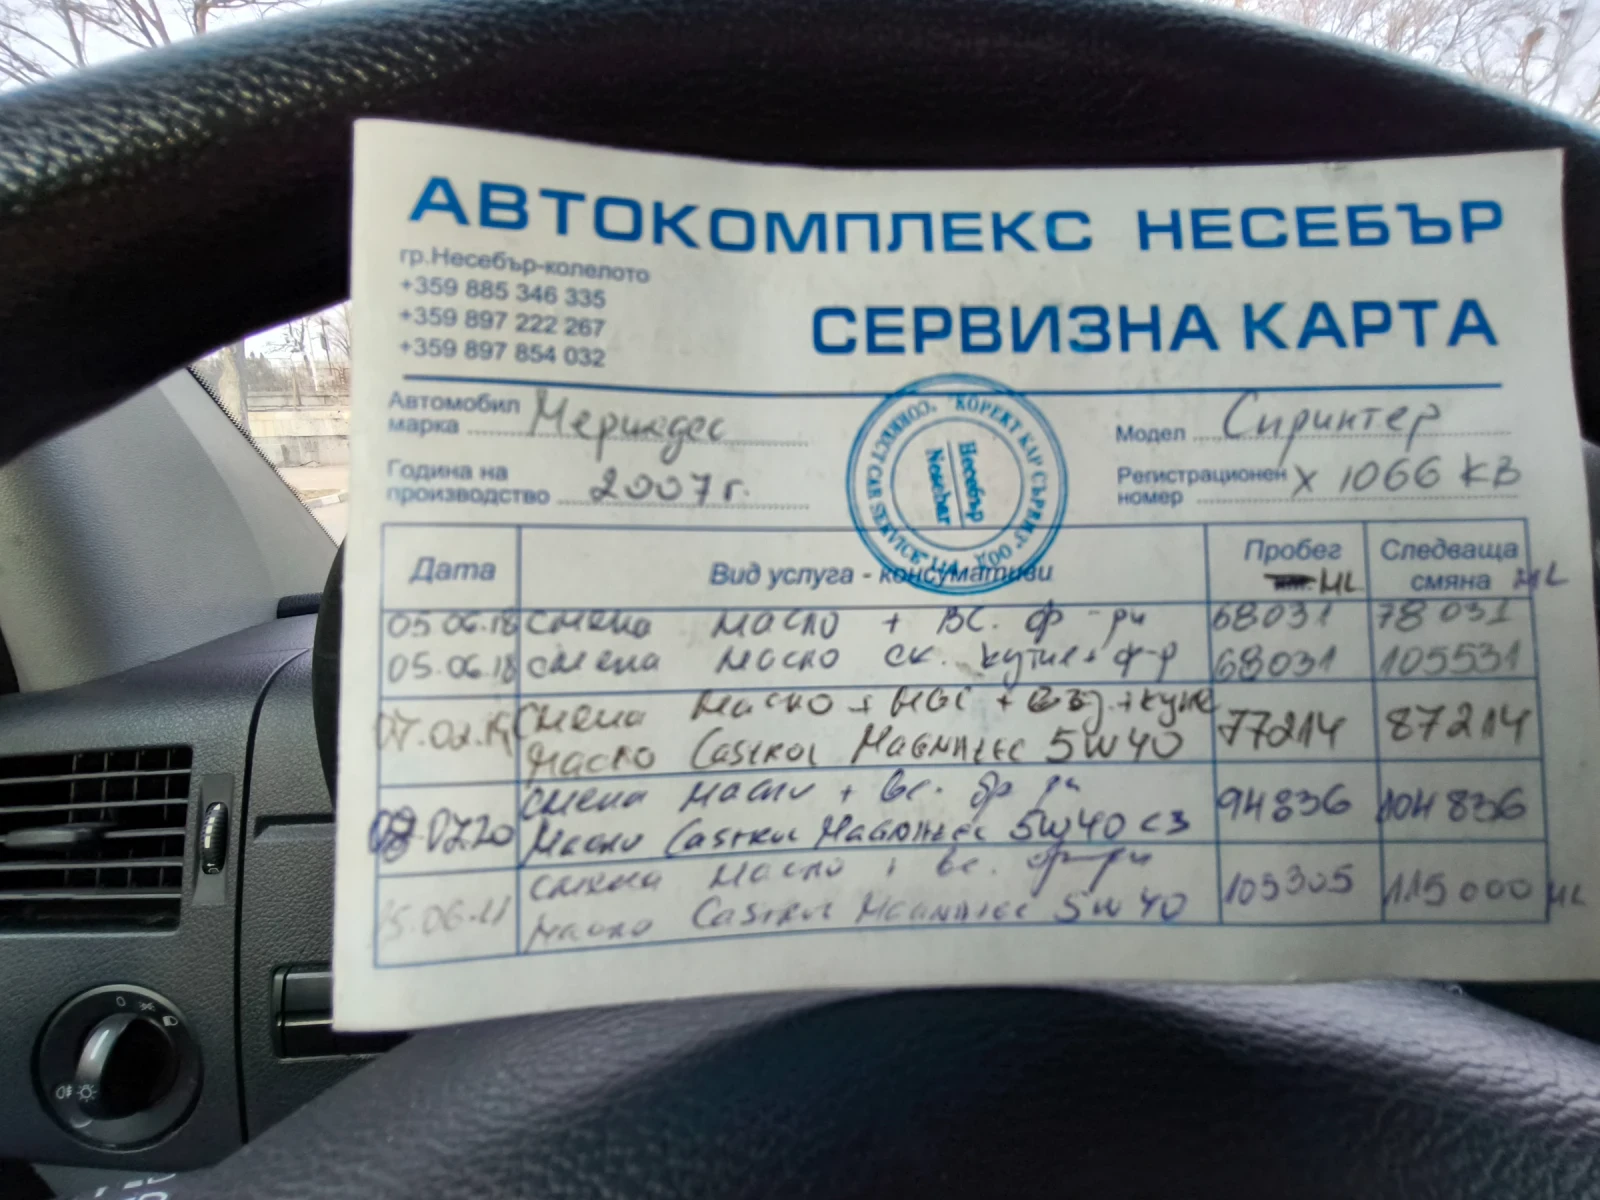 АВТОКОМПЛЕКС НЕСЕБЪР
гр.Несебър-колелото
+359 885 346 335
+359 897 222 267
+359 897 854 032
СЕРВИЗНА КАРТА
Автомобил марка Мерцедес
Модел Спринтер
Година на производство 2007г.
Регистрационен номер X 1066 KB
"КОРЕКТ КАР СЪРВИЗ" ООД
"CORRECT CAR SERVICE" LTD
Несебър
Nesebar
Дата Вид услуга - консумативи Пробег км. ML Следваща смяна ML
05.06.18 смена масло + вс. ф-ри 68031 78031
05.06.18 смена масло ск. кутия + ф-р 68031 105531
смена масло + + купе 77214 87214
масло Castrol Magnatec 5W40
07.20 смена масло + вс. фр ри 94836 104836
Масло Castrol Magnatec 5W40 C3
15.06.21 смена масло + вс. ф-ри 105305 115000 ML
масло Castrol Magnatec 5W40
0